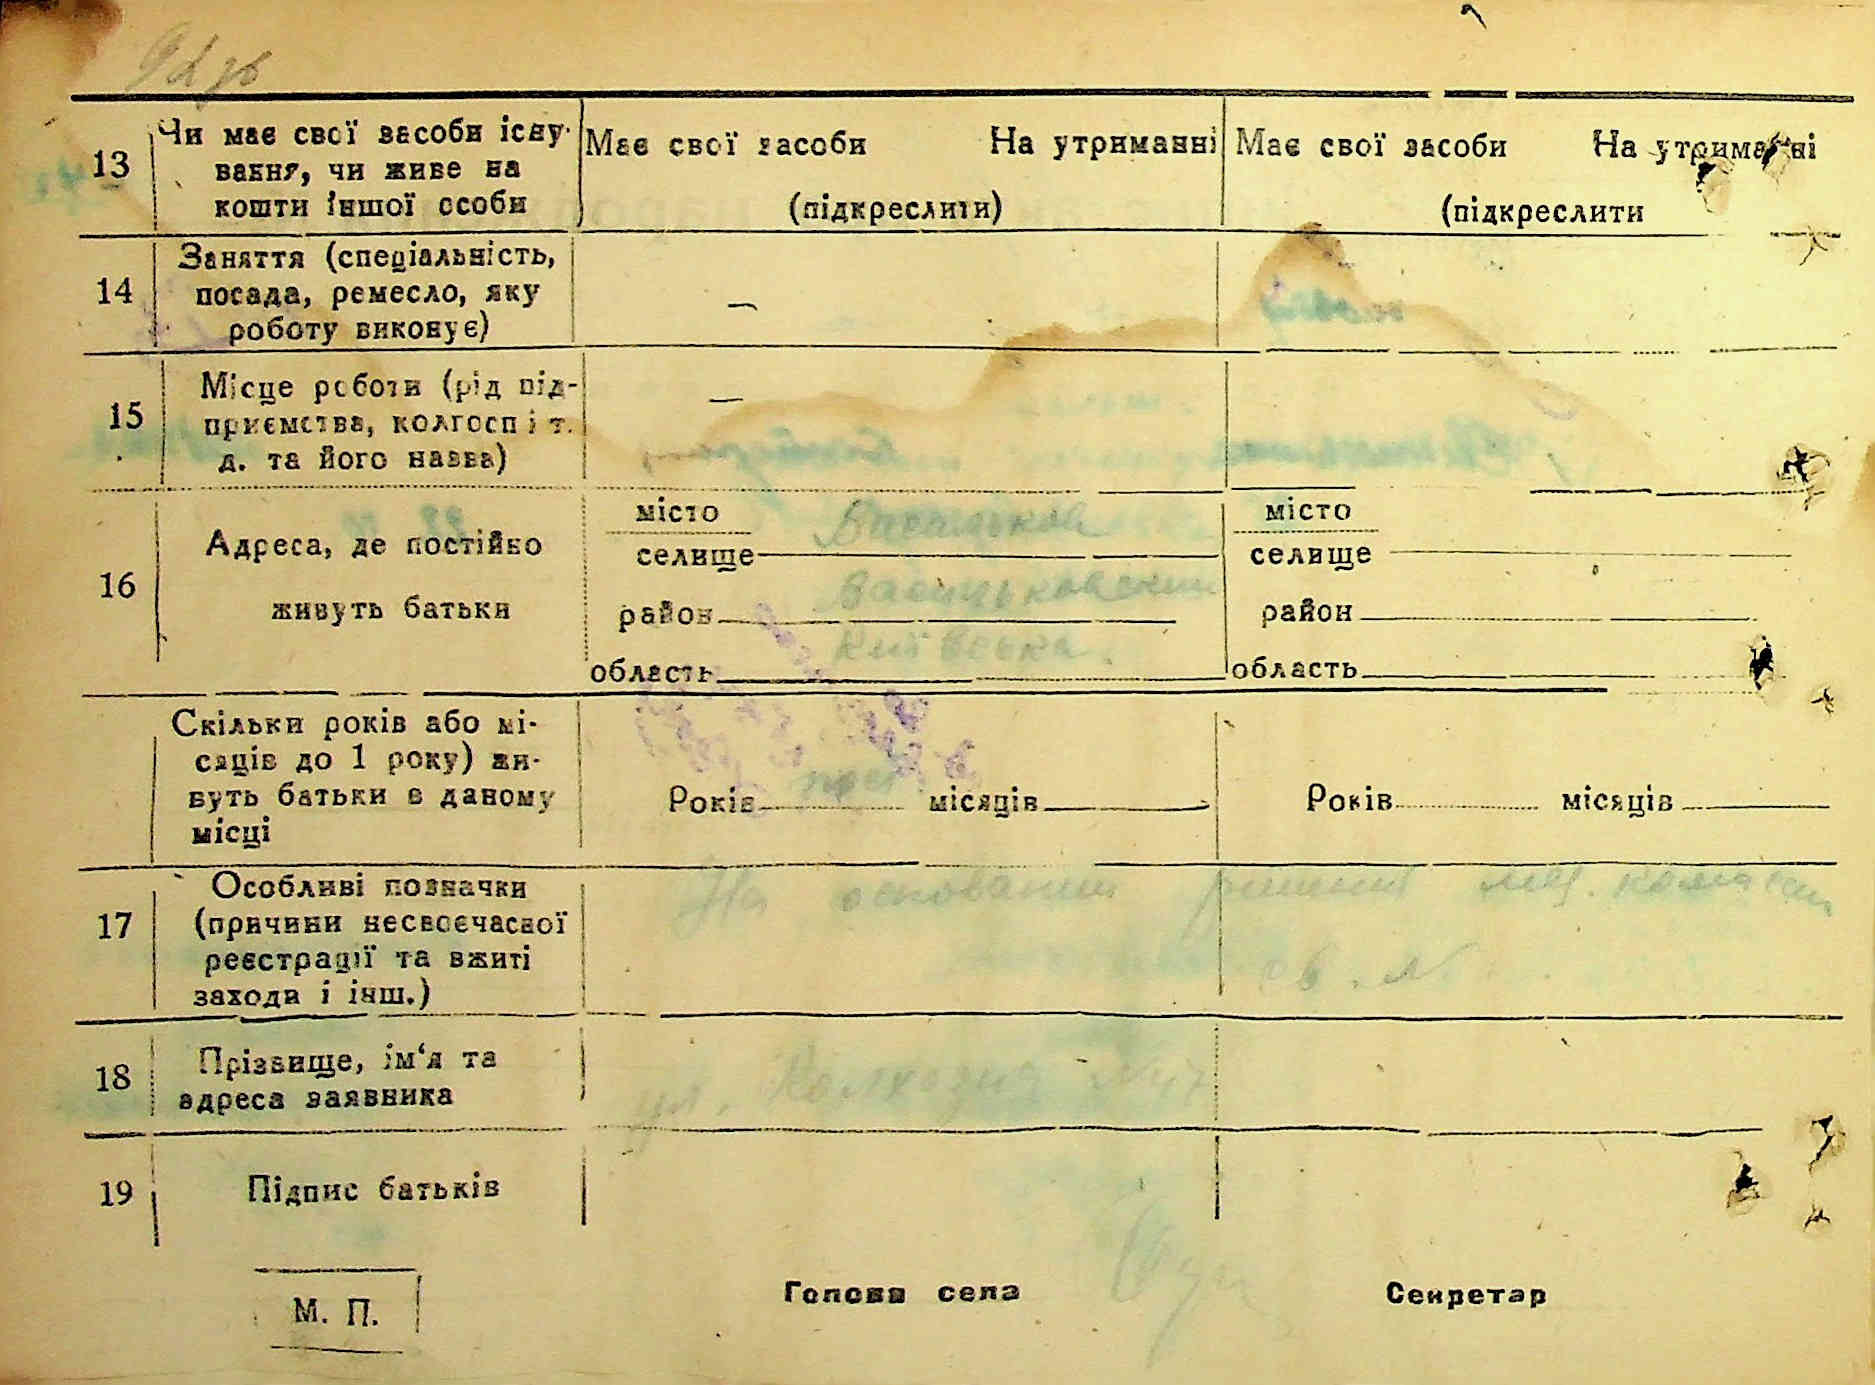 13 Чи має свої засоби існу-
вання, чи живе на
кошти іншої особи
Має свої засоби На утриманні
(підкреслити)
Має свої засоби На утриманні
(підкреслити
14 Заняття (спеціальність,
посада, ремесло, яку
роботу виконує)
—
15 Місце роботи (рід під-
приємства, колгосп і т.
д. та його назва)
—
16 Адреса, де постійно
живуть батьки
місто
селище Васильков
район Васильковский
область Київська.
місто
селище
район
область
Скільки років або мі-
сяців до 1 року) жи-
вуть батьки в даному
місці
Років місяців
Років місяців
17 Особливі позначки
(причини несвоєчасної
реєстрації та вжиті
заходи і інш.)
На основании решения мед. комиссии
18 Прізвище, ім'я та
адреса заявника
ул. Колхозна №47
19 Підпис батьків
М. П.
Голова села
Секретар